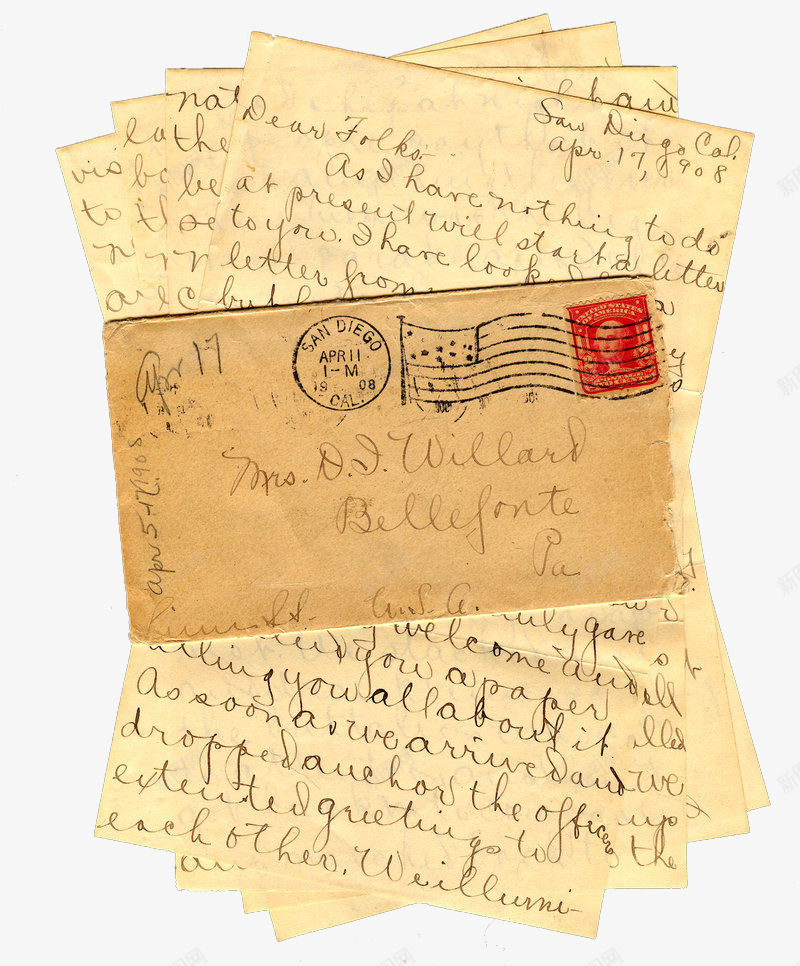 San Diego Cal.
Apr. 17, 1908
Dear Folks-
As I have nothing to do
at present will start a letter
to you. I have
letter from
nat
la the
vis bo be
to se
SAN DIEGO
APR 11
1-M
1908
CAL.
UNITED STATES
OF AMERICA
Apr 17
Apr 5-17 1908
Mrs. D. I. Willard
Bellefonte
Pa
U.S.A.
truly gave
welcome and
you a paper
telling you all about it.
As soon as we arrived and we
dropped anchor the officers
extented greetings to
each other. We illumi-
ell
lled
up
the